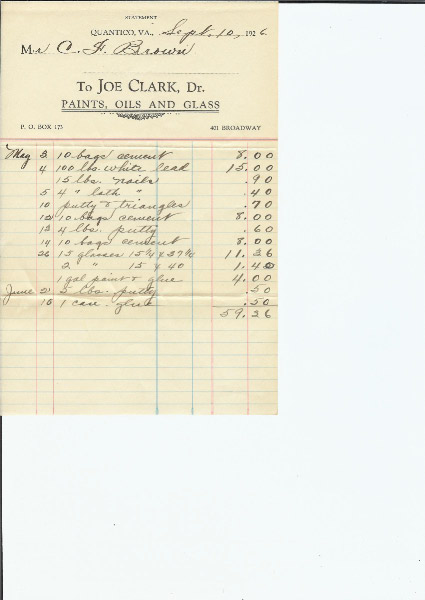 STATEMENT
QUANTICO, VA., Sept. 10, 1926
Mr C. F. Brown
To JOE CLARK, Dr.
PAINTS, OILS AND GLASS
P. O. BOX 173 401 BROADWAY
May 3 10 bags cement 8.00
4 100 lbs. white lead 15.00
15 lbs. nails .90
5 4 " lath " .40
10 putty & triangles .70
12 10 bags cement 8.00
13 4 lbs. putty .60
14 10 bags cement 8.00
26 13 glasses 15 1/4 x 37 1/2 11.26
2 " 15 x 40 1.40
1 gal paint & glue 4.00
June 2 5 lbs. putty .50
15 1 can glue .50
59.26